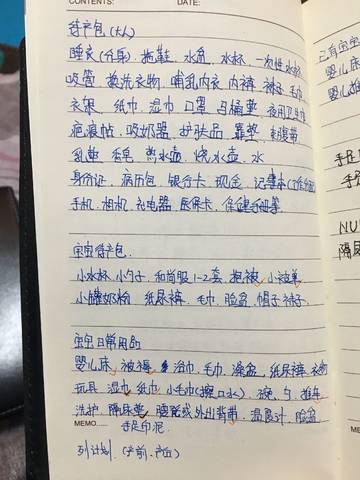 CONTENTS: DATE:
待产包(大人)
睡衣(分身)、拖鞋、水盆、水杯、一次性水杯
吸管 换洗衣物、哺乳内衣 内裤 袜子 毛巾
衣架、纸巾、湿巾 口罩 马桶垫、夜用卫生巾
疤痕帖、吸奶器 护肤品 靠垫 束腹带
乳垫 香皂 热水壶、烧水壶、水
身份证、病历包、银行卡 现金、记事本
手机、相机、充电器、医保卡、保健手册等
宝宝待产包
小水杯、小勺子、和尚服1-2套、抱被、小被单
小罐奶粉 纸尿裤、毛巾、脸盆、帽子 袜子
宝宝日常用品
婴儿床、被褥、浴巾、毛巾、澡盆、纸尿裤、衣物
玩具、湿巾、纸巾、小毛巾(擦口水)、碗、勺、推车
洗护、隔尿垫、腰凳或外出背带、温度计、脸盆
MEMO
手足印泥
列计划、(产前、产后)
已有宝宝
婴儿床
婴儿
手足
NU
隔尿